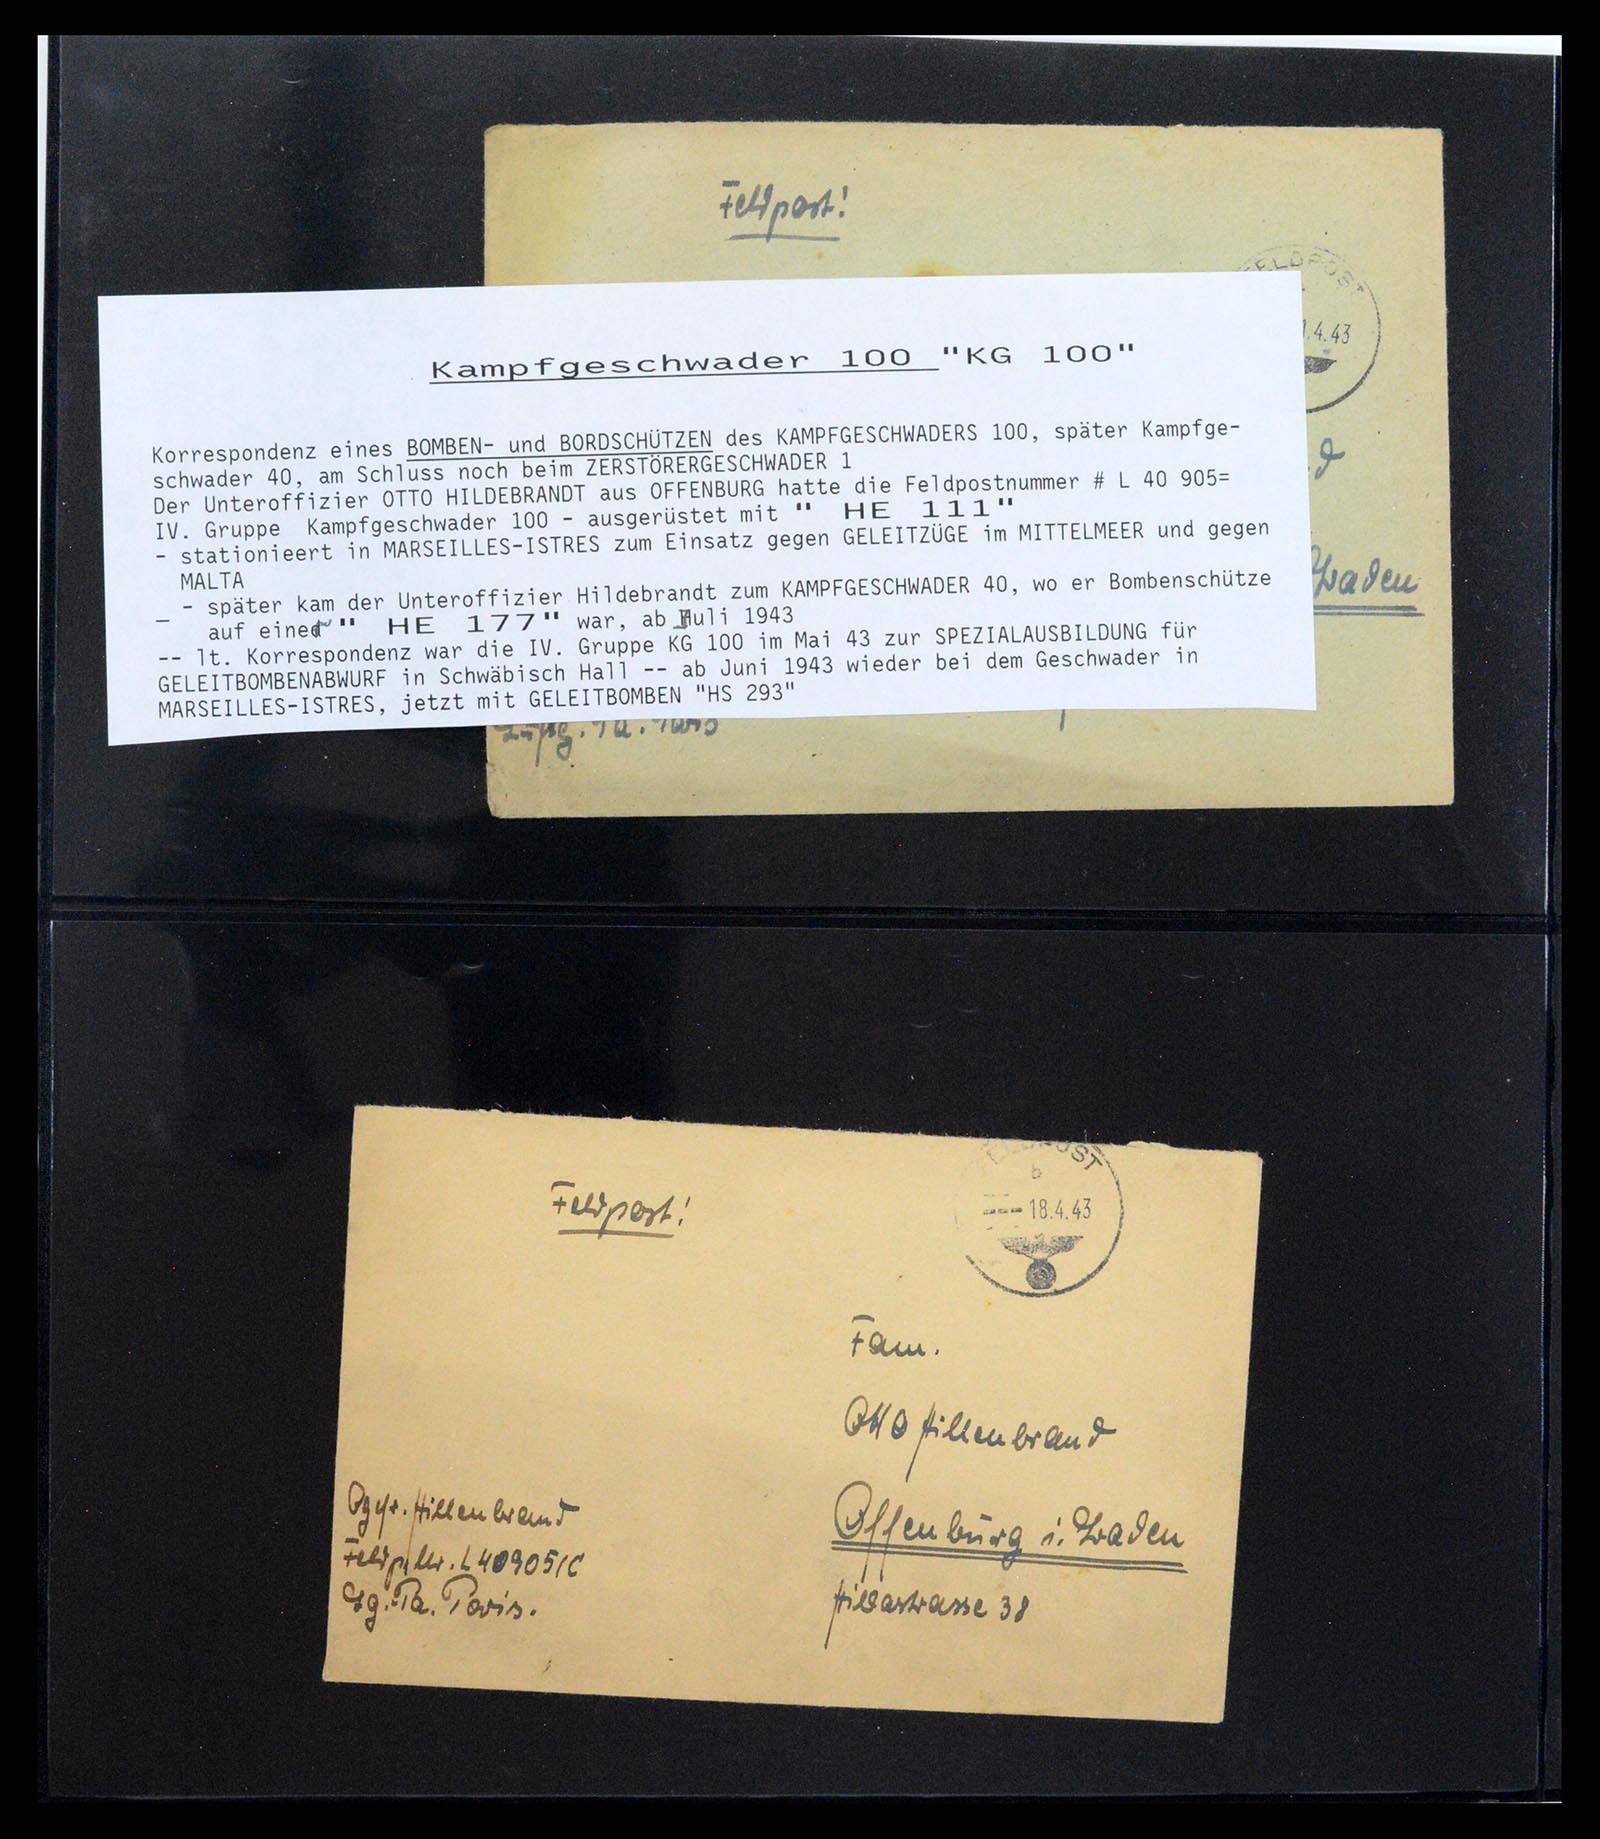 Feldpost!
FELDPOST
.4.43
d
Baden
Kampfgeschwader 100 "KG 100"
Korrespondenz eines BOMBEN- und BORDSCHÜTZEN des KAMPFGESCHWADERS 100, später Kampfge-
schwader 40, am Schluss noch beim ZERSTÖRERGESCHWADER 1
Der Unteroffizier OTTO HILDEBRANDT aus OFFENBURG hatte die Feldpostnummer # L 40 905=
IV. Gruppe Kampfgeschwader 100 - ausgerüstet mit " HE 111"
- stationieert in MARSEILLES-ISTRES zum Einsatz gegen GELEITZÜGE im MITTELMEER und gegen
MALTA
- - später kam der Unteroffizier Hildebrandt zum KAMPFGESCHWADER 40, wo er Bombenschütze
auf einer " HE 177" war, ab Juli 1943
-- lt. Korrespondenz war die IV. Gruppe KG 100 im Mai 43 zur SPEZIALAUSBILDUNG für
GELEITBOMBENABWURF in Schwäbisch Hall -- ab Juni 1943 wieder bei dem Geschwader in
MARSEILLES-ISTRES, jetzt mit GELEITBOMBEN "HS 293"
Luftg. Pa. Paris
Feldpost!
FELDPOST
b
--- 18.4.43
Fam.
Otto Hillenbrand
Offenburg i. Baden
Hildastrasse 38
Ogefr. Hillenbrand
Feldp. Nr. L 40905/C
Lg. Pa. Paris.